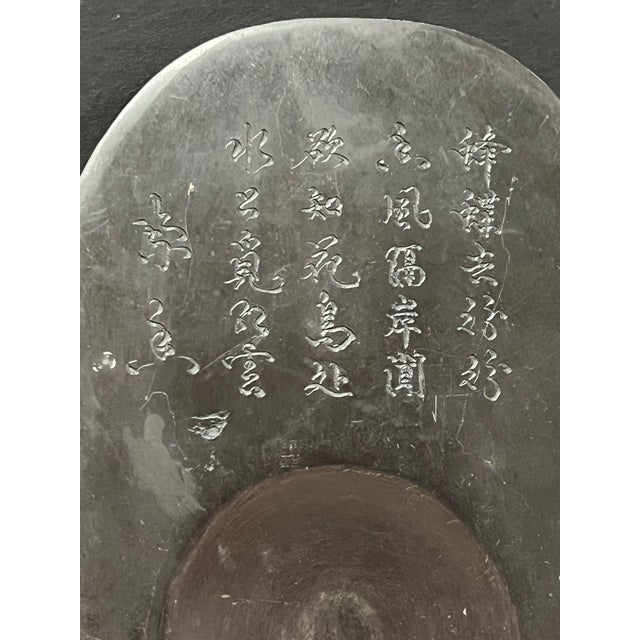 蜂蝶去紛紛
香風隔岸聞
欲知花島处
水上覓紅雲
香